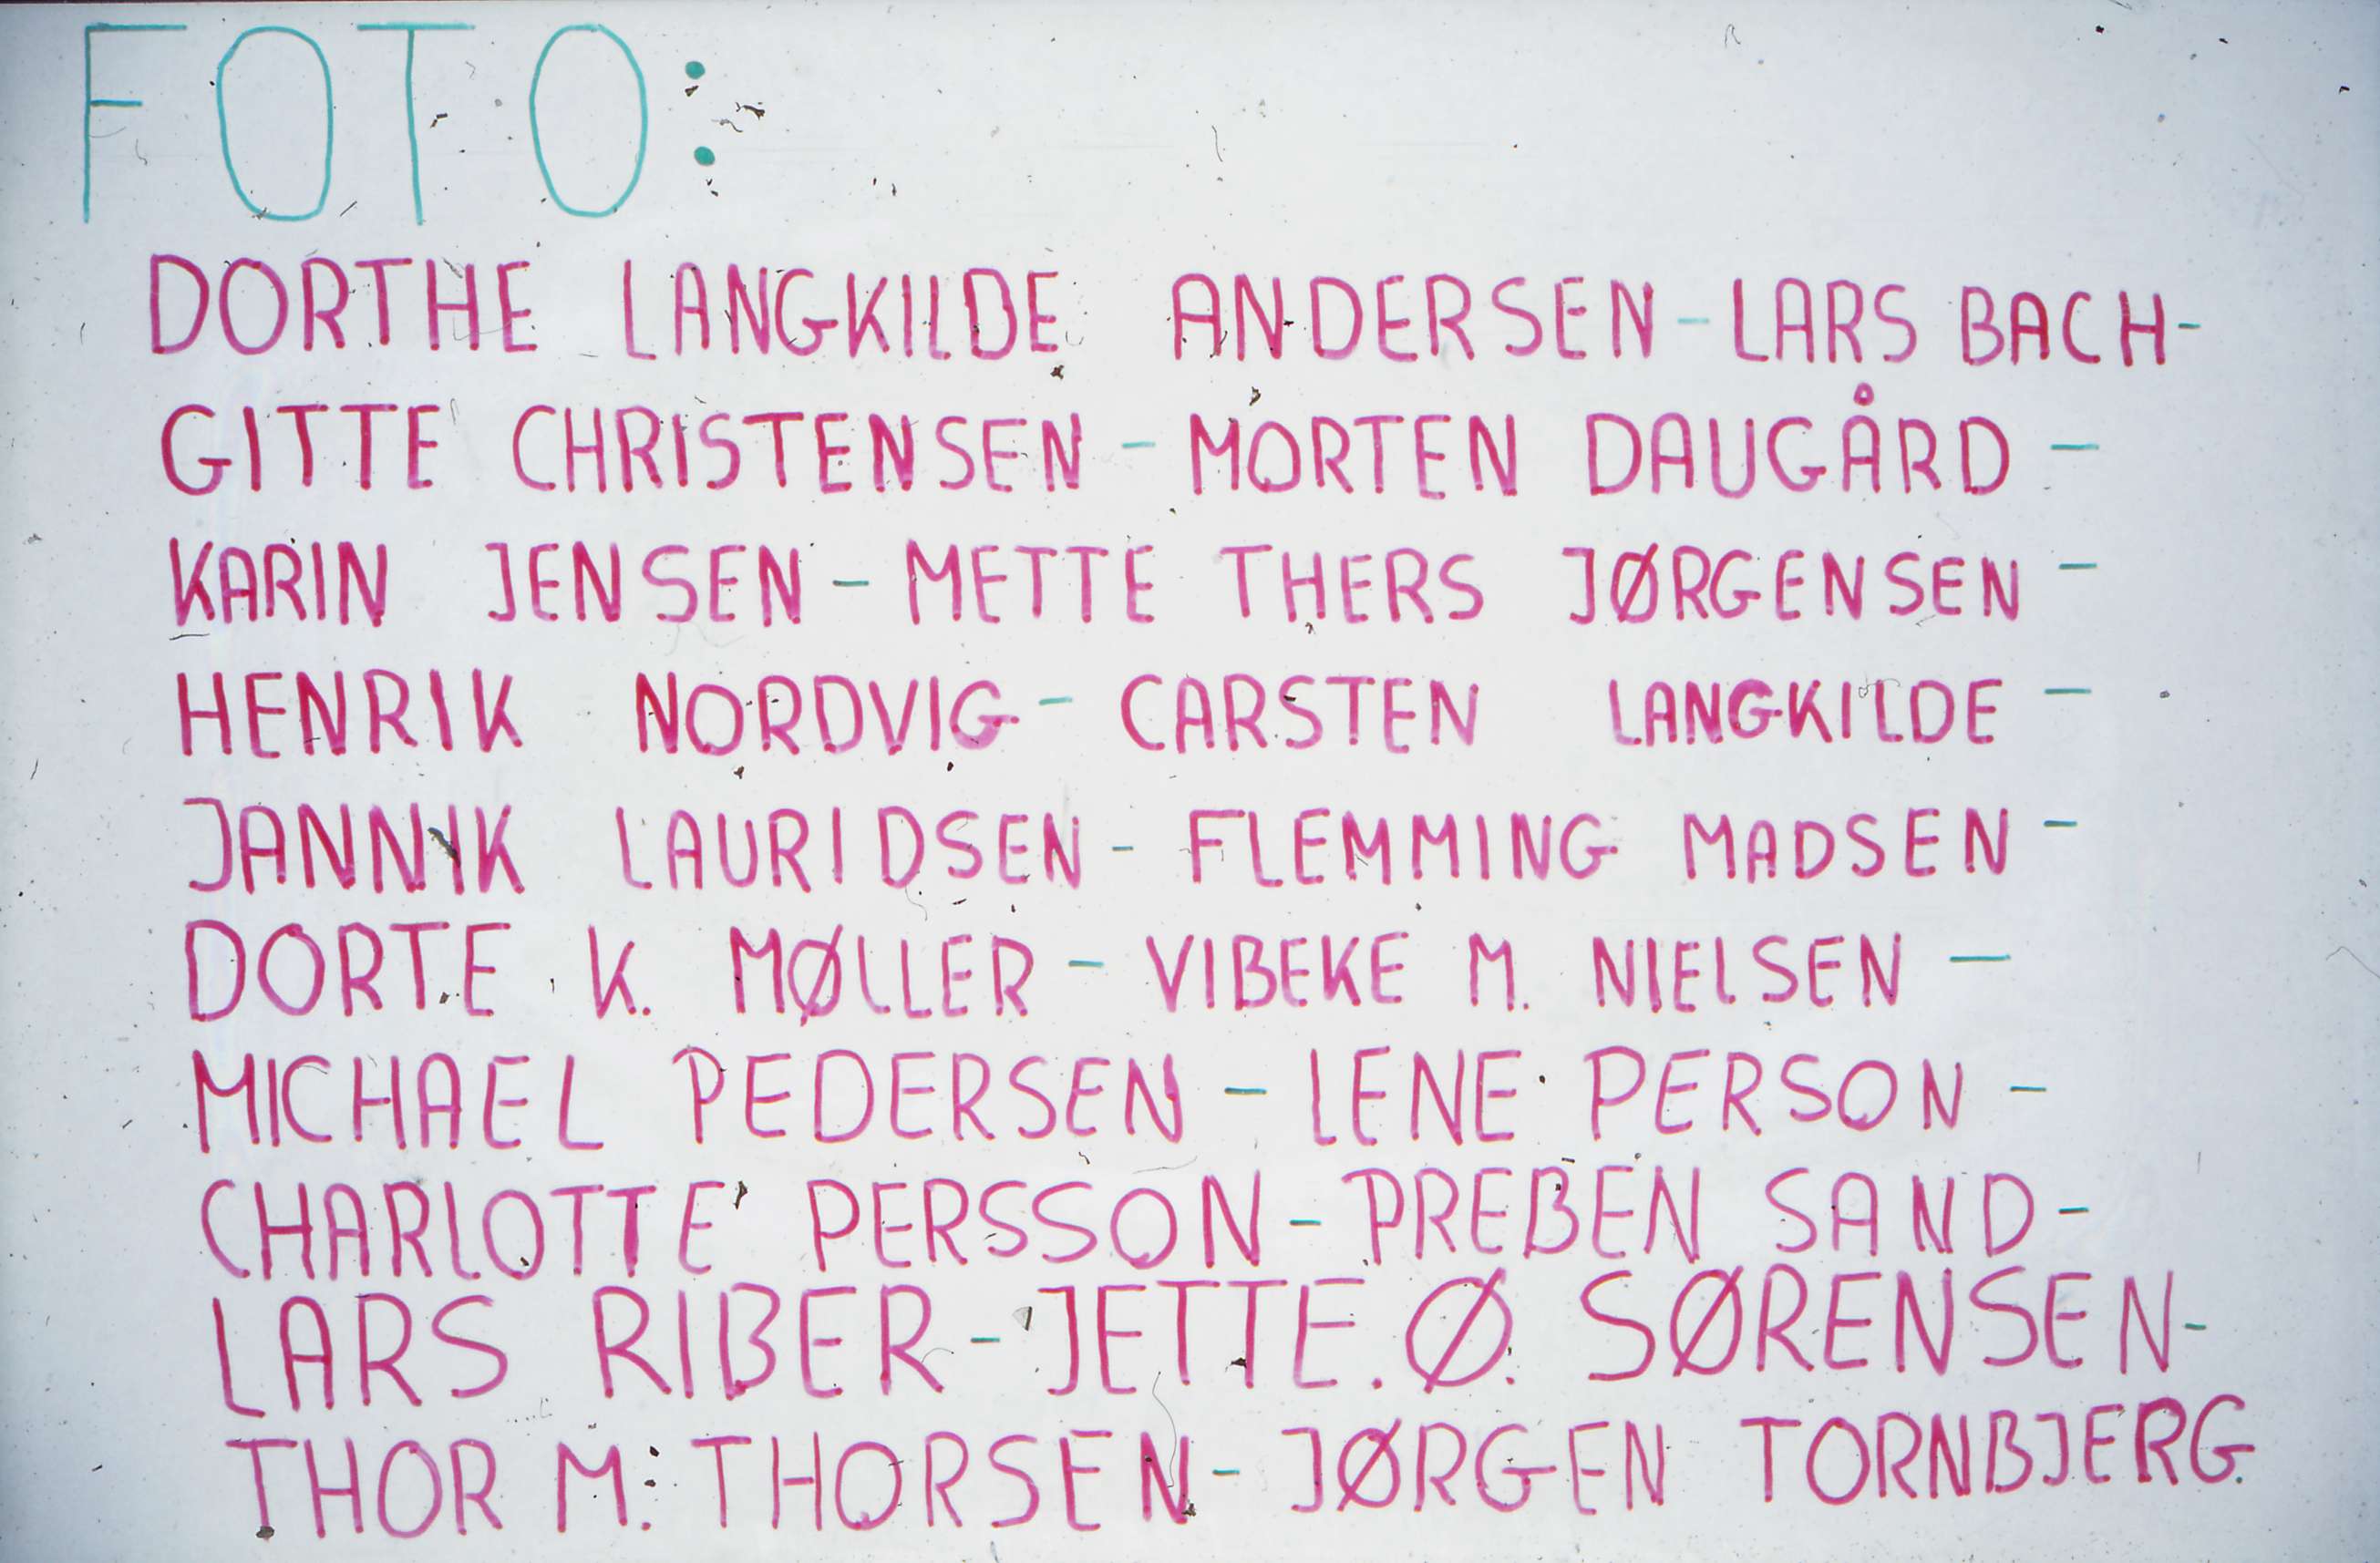 FOTO:
DORTHE LANGKILDE ANDERSEN - LARS BACH -
GITTE CHRISTENSEN - MORTEN DAUGÅRD -
KARIN JENSEN - METTE THERS JØRGENSEN -
HENRIK NORDVIG - CARSTEN LANGKILDE -
JANNIK LAURIDSEN - FLEMMING MADSEN -
DORTE K. MØLLER - VIBEKE M. NIELSEN -
MICHAEL PEDERSEN - LENE PERSON -
CHARLOTTE PERSSON - PREBEN SAND -
LARS RIBER - JETTE.Ø. SØRENSEN -
THOR M. THORSEN - JØRGEN TORNBJERG